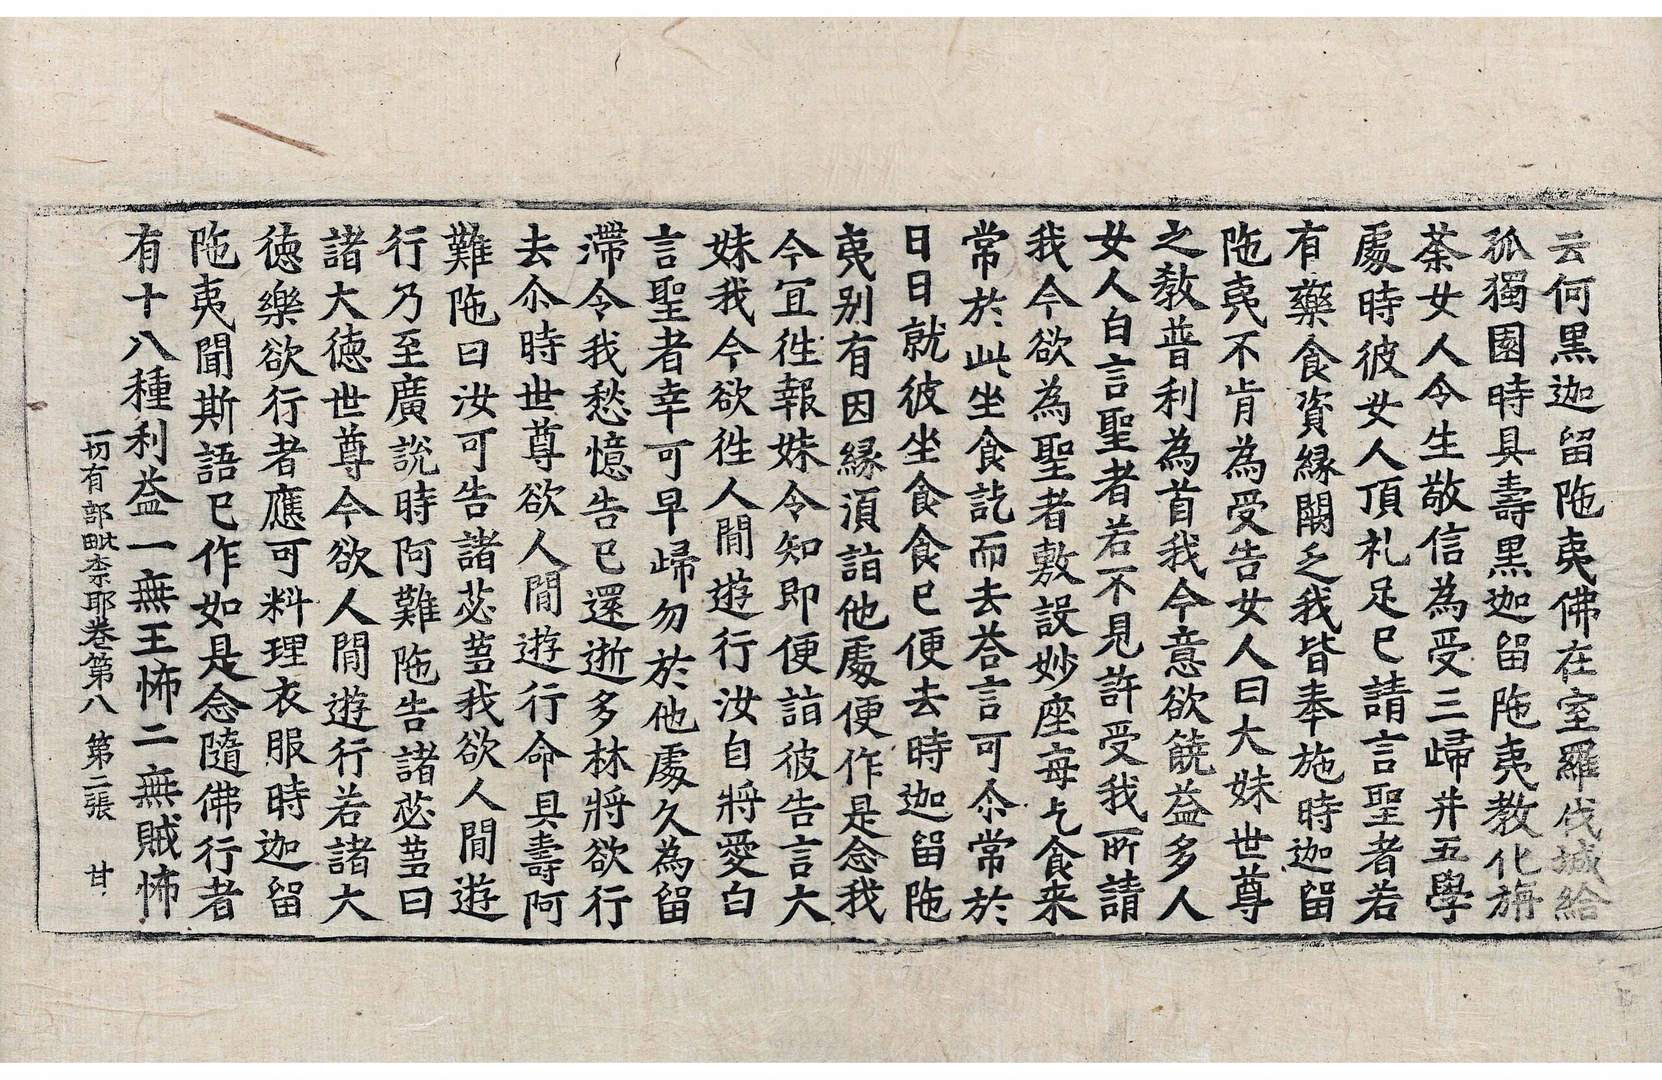 云何黑迦留陁夷佛在室羅伐城給
孤獨園時具壽黑迦留陁夷教化旃
荼女人令生敬信為受三歸并五學
處時彼女人頂礼足已請言聖者若
有藥食資緣闕乏我皆奉施時迦留
陁夷不肯為受告女人曰大妹世尊
之教普利為首我今意欲饒益多人
女人白言聖者若不見許受我所請
我今欲為聖者敷設妙座每乞食来
常於此坐食訖而去荅言可尒常於
日日就彼坐食食已便去時迦留陁
夷别有因緣湏詣他處便作是念我
今宜徃報妹令知即便詣彼告言大
妹我今欲徃人間遊行汝自將愛白
言聖者幸可早歸勿於他處久為留
滯令我愁憶告已還逝多林將欲行
去尒時世尊欲人間遊行命具壽阿
難陁曰汝可告諸苾蒭我欲人間遊
行乃至廣說時阿難陁告諸苾蒭曰
諸大德世尊今欲人間遊行若諸大
德樂欲行者應可料理衣服時迦留
陁夷聞斯語已作如是念隨佛行者
有十八種利益一無王怖二無賊怖
一切有部毗柰耶卷第八 第二張 甘